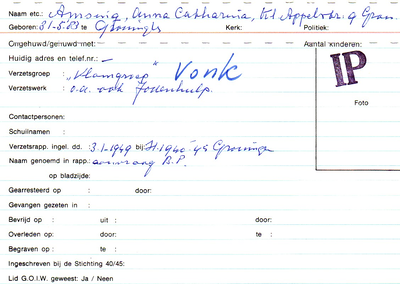 Naam etc.: Amsing, Anna Catharina,
Geboren: 31-5.83 te Groningen Kerk: Politiek:
Ongehuwd/gehuwd met: Aantal kinderen:
Huidig adres en telef.nr.: –
Verzetsgroep : "Klamgroep" Vonk
Verzetswerk : o.a. ook Jodenhulp.
IP
Foto
Contactpersonen:
Schuilnaam :
Verzetsrapp. ingel. dd. 3-1-1949 bij: 1940-45 Groningen
Naam genoemd in rapp.: aanvrang B.P.
op bladzijde:
Gearresteerd op : door:
Gevangen gezeten in :
Bevrijd op : uit : door:
Overleden op: door: te :
Begraven op : te :
Ingeschreven bij de Stichting 40/45:
Lid G.O.I.W. geweest: Ja / Neen